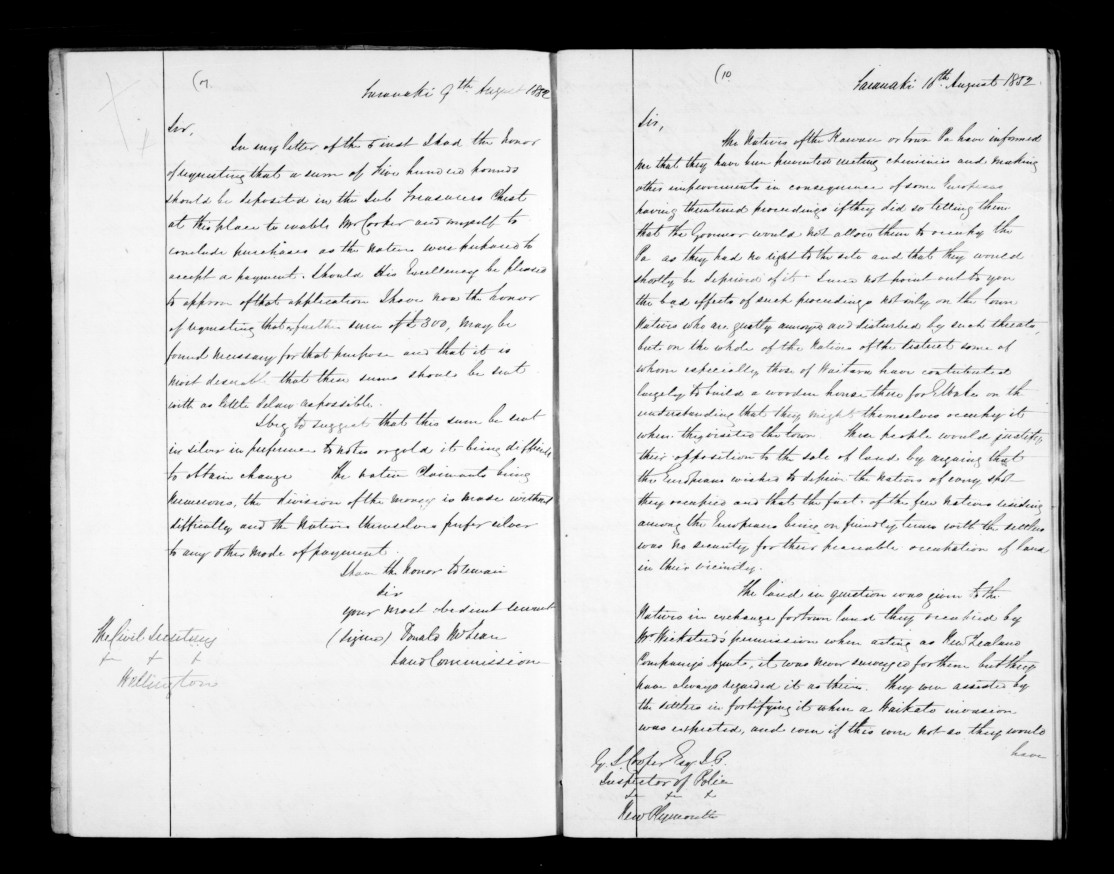 (7.
Taranaki 9th August 1852
Sir,
In my letter of the 5 inst I had the honor
of requesting that a sum of Five hundred pounds
should be deposited in the Sub Treasurers Chest
at this place to enable Mr Cooper and myself to
conclude purchases as the natives were prepared to
accept a payment. Should His Excellency be pleased
to approve of that application I have now the honor
of requesting that a further sum of £300, may be
found necessary for that purpose and that it is
most desirable that these sums should be sent
with as little delay as possible.
I beg to suggest that this sum be sent
in silver in preference to notes or gold it being difficult
to obtain change The native Claimants being
numerous, the division of the money is made without
difficulty and the Natives themselves prefer silver
to any other mode of payment.
I have the honor to remain
Sir
your most obedient servant
(signed) Donald McLean
Land Commission
The Civil Secretary
+ + +
Wellington
(10
Taranaki 10th August 1852.
Sir,
The Natives of the Kawau or town Pa have informed
me that they have been prevented erecting chimnies and making
other improvements in consequence of some Europeans
having threatened proceedings if they did so telling them
that the Governor would not allow them to occupy the
Pa as they had no right to the site and that they would
shortly be deprived of it. I need not point out to you
the bad effects of such proceedings not only on the town
Natives who are greatly annoyed and disturbed by such threats,
but on the whole of the Natives of the district some of
whom especially those of Waitara have contributed
largely to build a wooden house there for on the
understanding that they might themselves occupy it
when they visited the town. These people would justify
their opposition to the sale of land by arguing that
the Europeans wished to deprive the natives of every spot
they occupied and that the fact of the few Natives residing
among the Europeans being on friendly terms with the settlers
was no security for their peaceable occupation of land
in their vicinity.
The land in question was given to the
Natives in exchange for town land they occupied by
Mr Wicksteed's permission when acting as New Zealand
Company's Agent, it was never surveyed for them but they
have always regarded it as theirs. They were assisted by
the settlers in fortifying it when a Waikato invasion
was expected, and even if this were not so they would
have
G. S. Cooper Esq J.P.
Inspector of Police
+ + +
New Plymouth